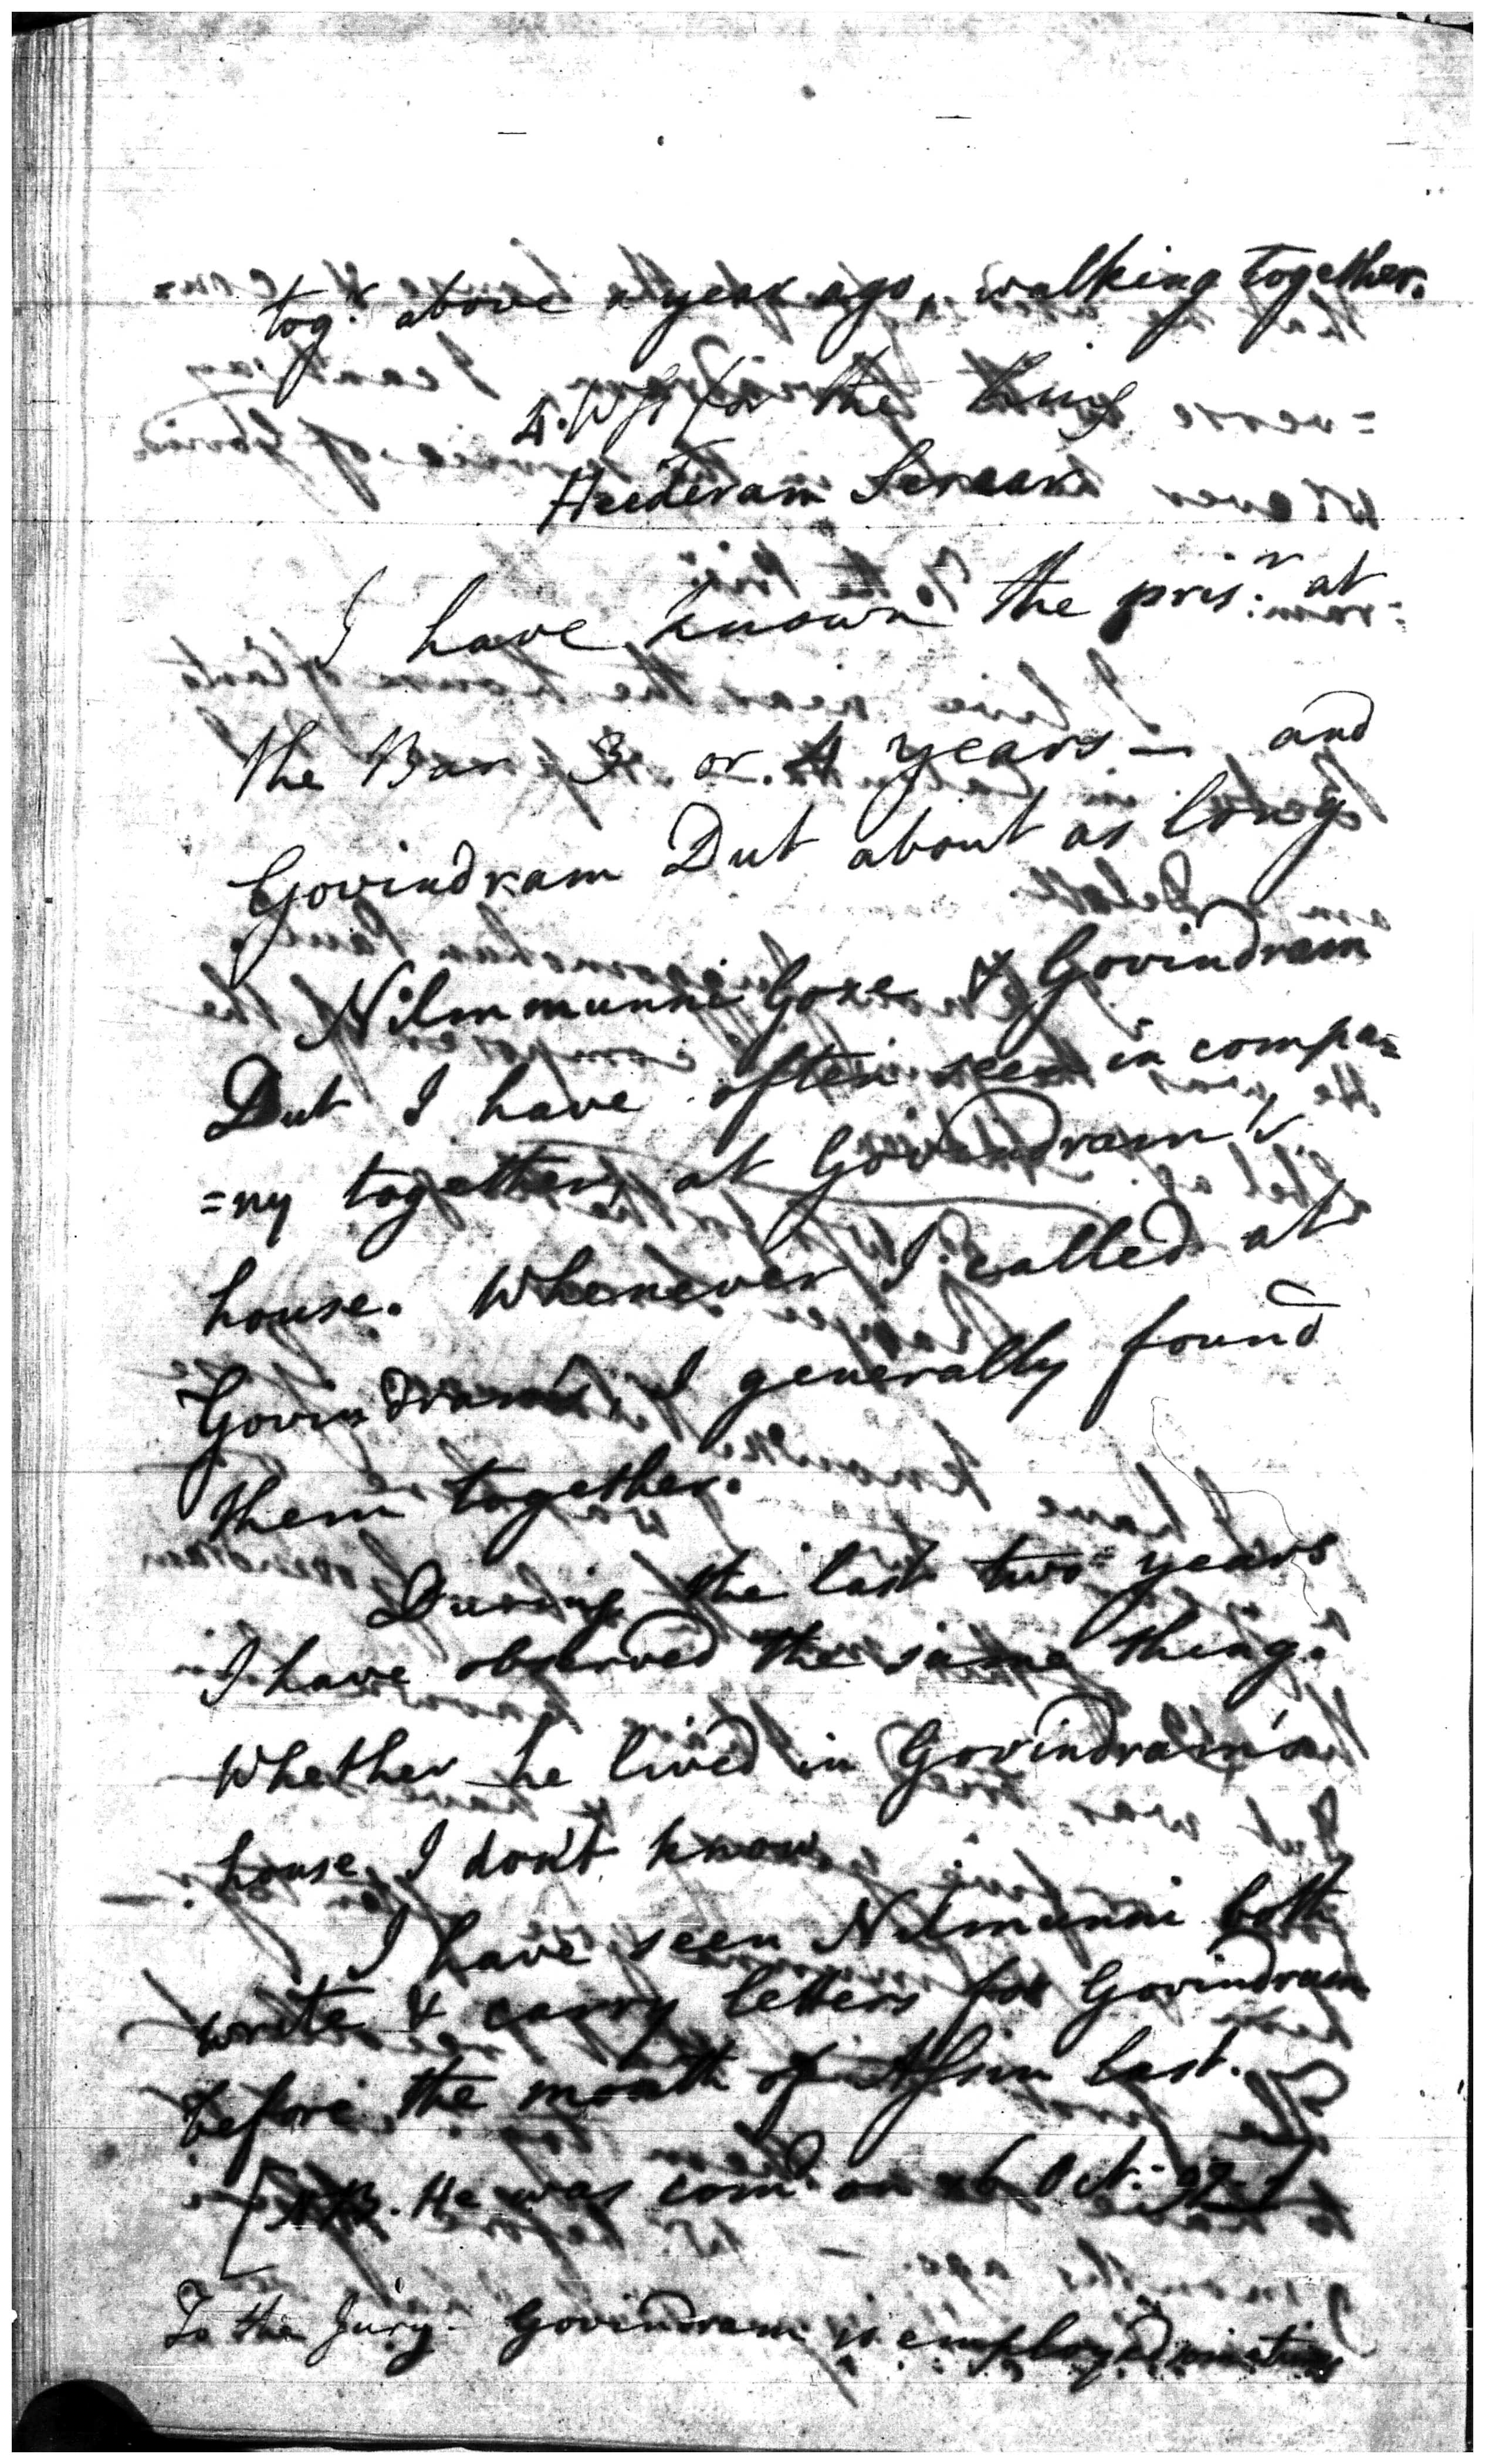 tog.r above a year ago, walking together.
4. Wss for the King
Heederam Sircar
I have known the pris.r at
the Bar 3 or 4 years — and
Govindram Dut about as long
Nilmmunni Gose & Govindram
Dut I have often seen in compa=
=ny together, at Govindram's
house. Whenever I called at
Govindram's, I generally found
them together.
During the last two years
I have observed the same thing.
Whether he lived in Govindram's
house, I don't know.
I have seen Nilmunni both
write & carry letters for Govindram
before the month of Assin last.
[NB. He was com.d on Oct.
To the Jury. Govindram is employed